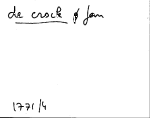 de crock Jan
1771/4